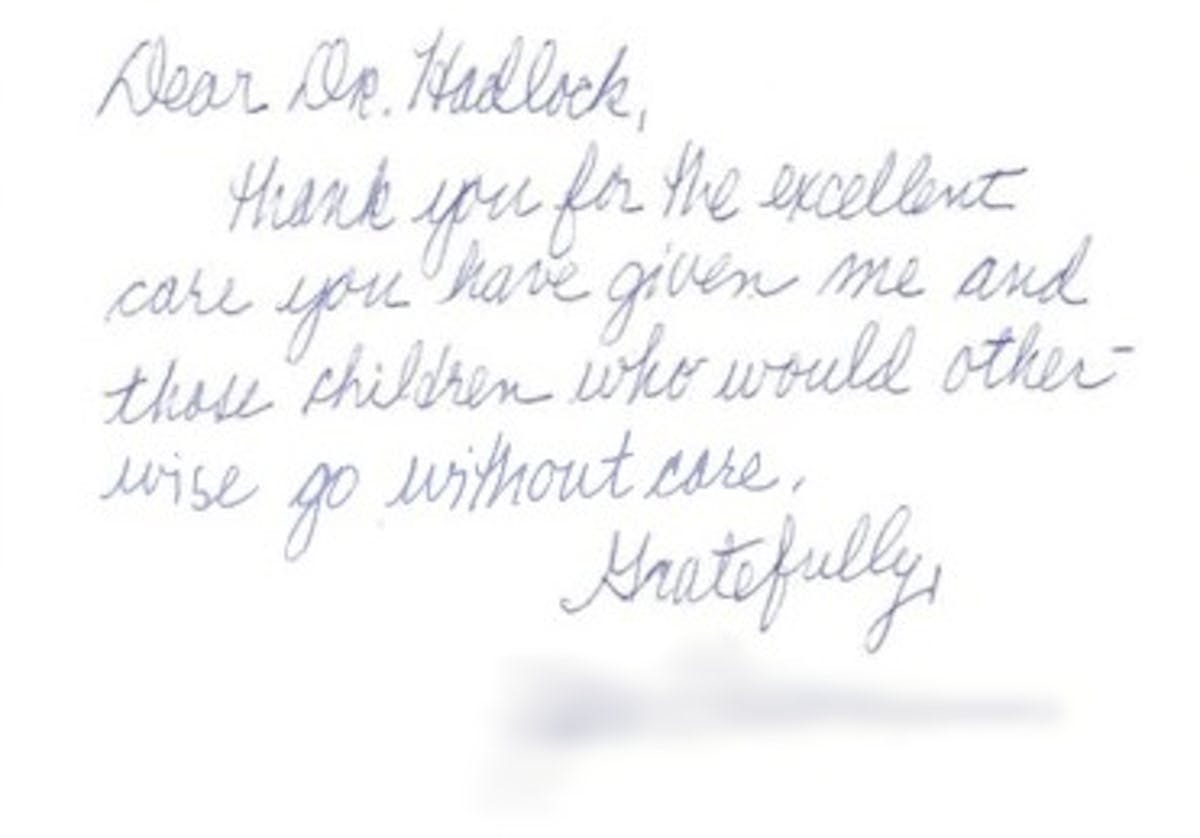 Dear Dr. Hadlock,
Thank you for the excellent
care you have given me and
those children who would other-
wise go without care.
Gratefully,